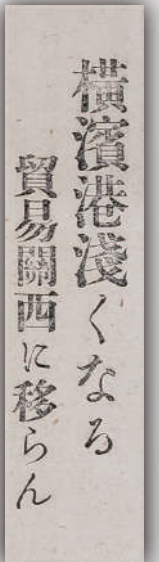 横濱港淺くなる
貿易關西に移らん